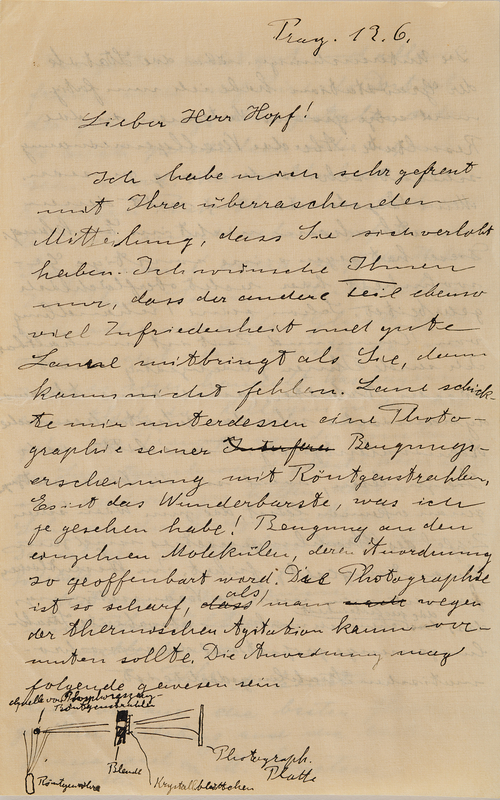 Prag. 12.6.
Lieber Herr Hopf!
Ich habe mich sehr gefreut
mit Ihrer überraschenden
Mitteilung, dass Sie sich verlobt
haben. Ich wünsche Ihnen
nur, dass der andere Teil ebenso
viel Zufriedenheit und gute
Laune mitbringt als Sie, dann
kanns nicht fehlen. Laue schick-
te mir unterdessen eine Photo-
graphie seiner Interferen Beugungs-
erscheinung mit Röntgenstrahlen.
Es ist das Wunderbarste, was ich
je gesehen habe! Beugung an den
einzelnen Molekülen, deren Anordnung
so geoffenbart wird. Die Photographie
ist so scharf, dass als man wegen
der thermischen Agitation kaum ver-
muten sollte. Die Anordnung mag
folgende gewesen sein
Röntgenstrahlen
Röntgenröhre
Blende
Krystallblättchen
Photograph.
Platte